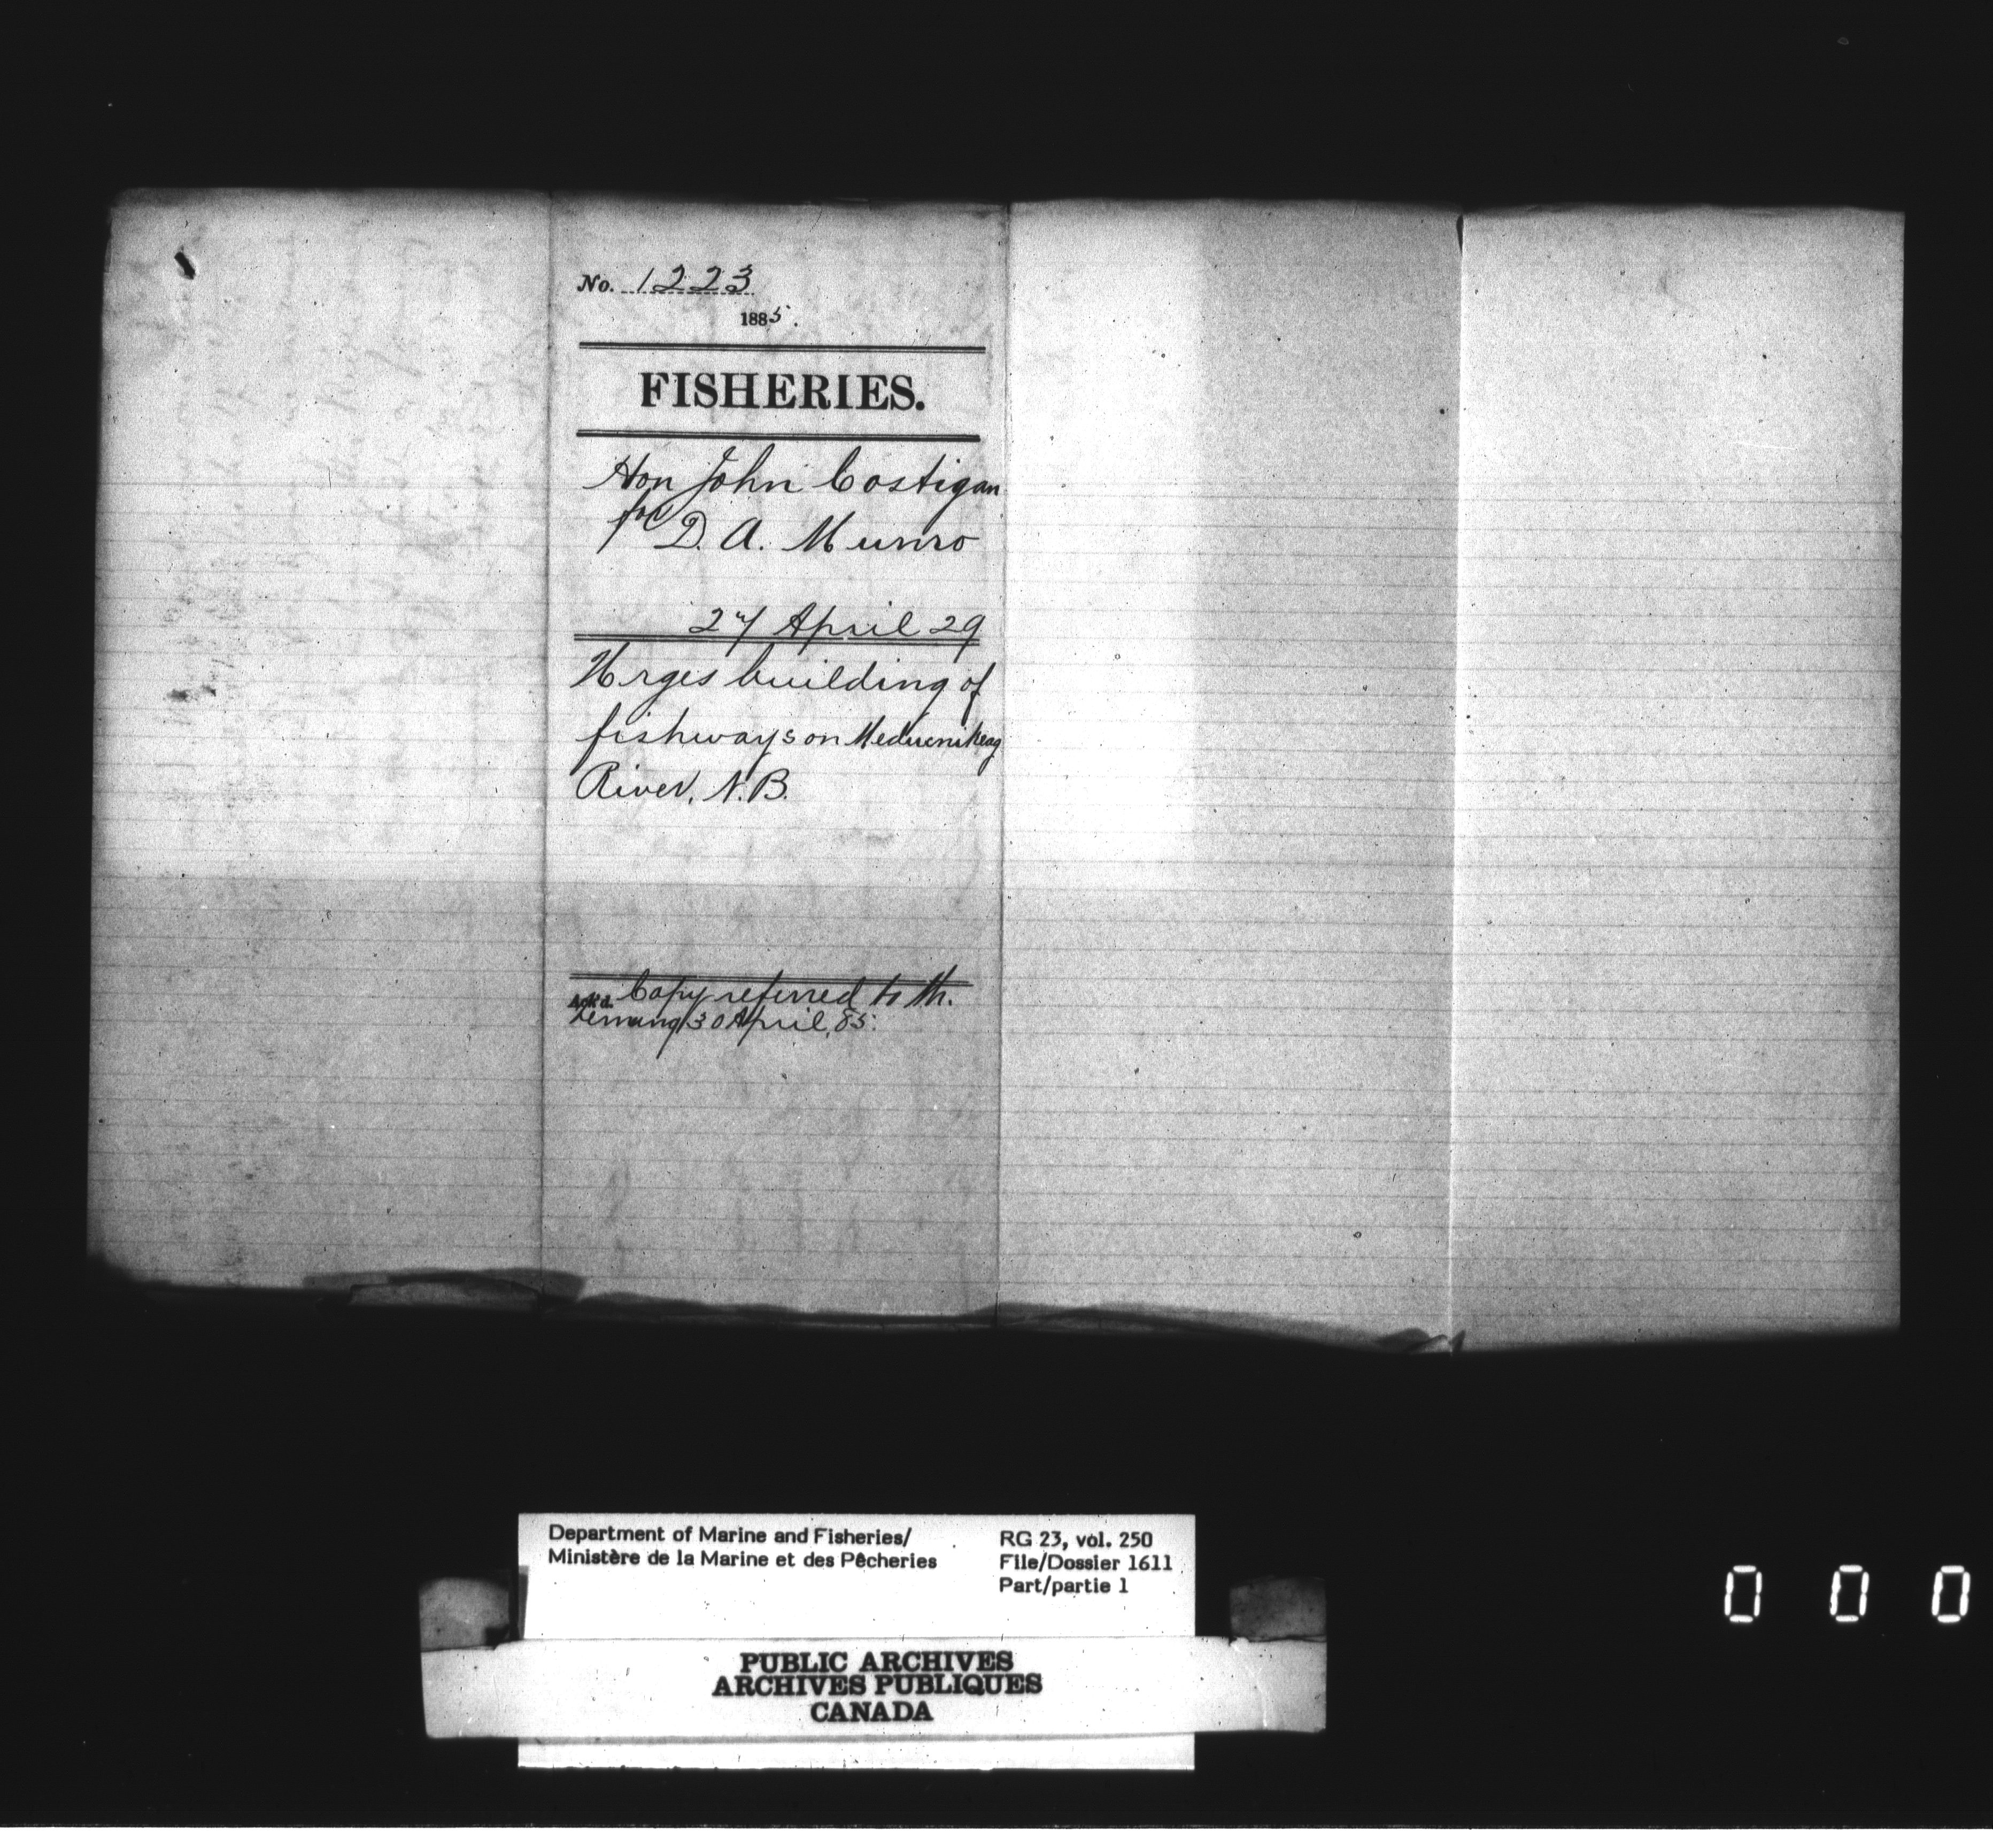 No. 1223
1885.
FISHERIES.
Hon John Costigan
for D. A. Munro
27 April 29
Urges building of
fishways on Meducnikeag
River, N.B.
Ack'd. Copy referred to Mr.
Venning 30 April, 85.
Department of Marine and Fisheries/
Ministère de la Marine et des Pêcheries
RG 23, vol. 250
File/Dossier 1611
Part/partie 1
PUBLIC ARCHIVES
ARCHIVES PUBLIQUES
CANADA
0 0 0